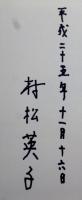 平成二十五年十一月十六日
村松英子